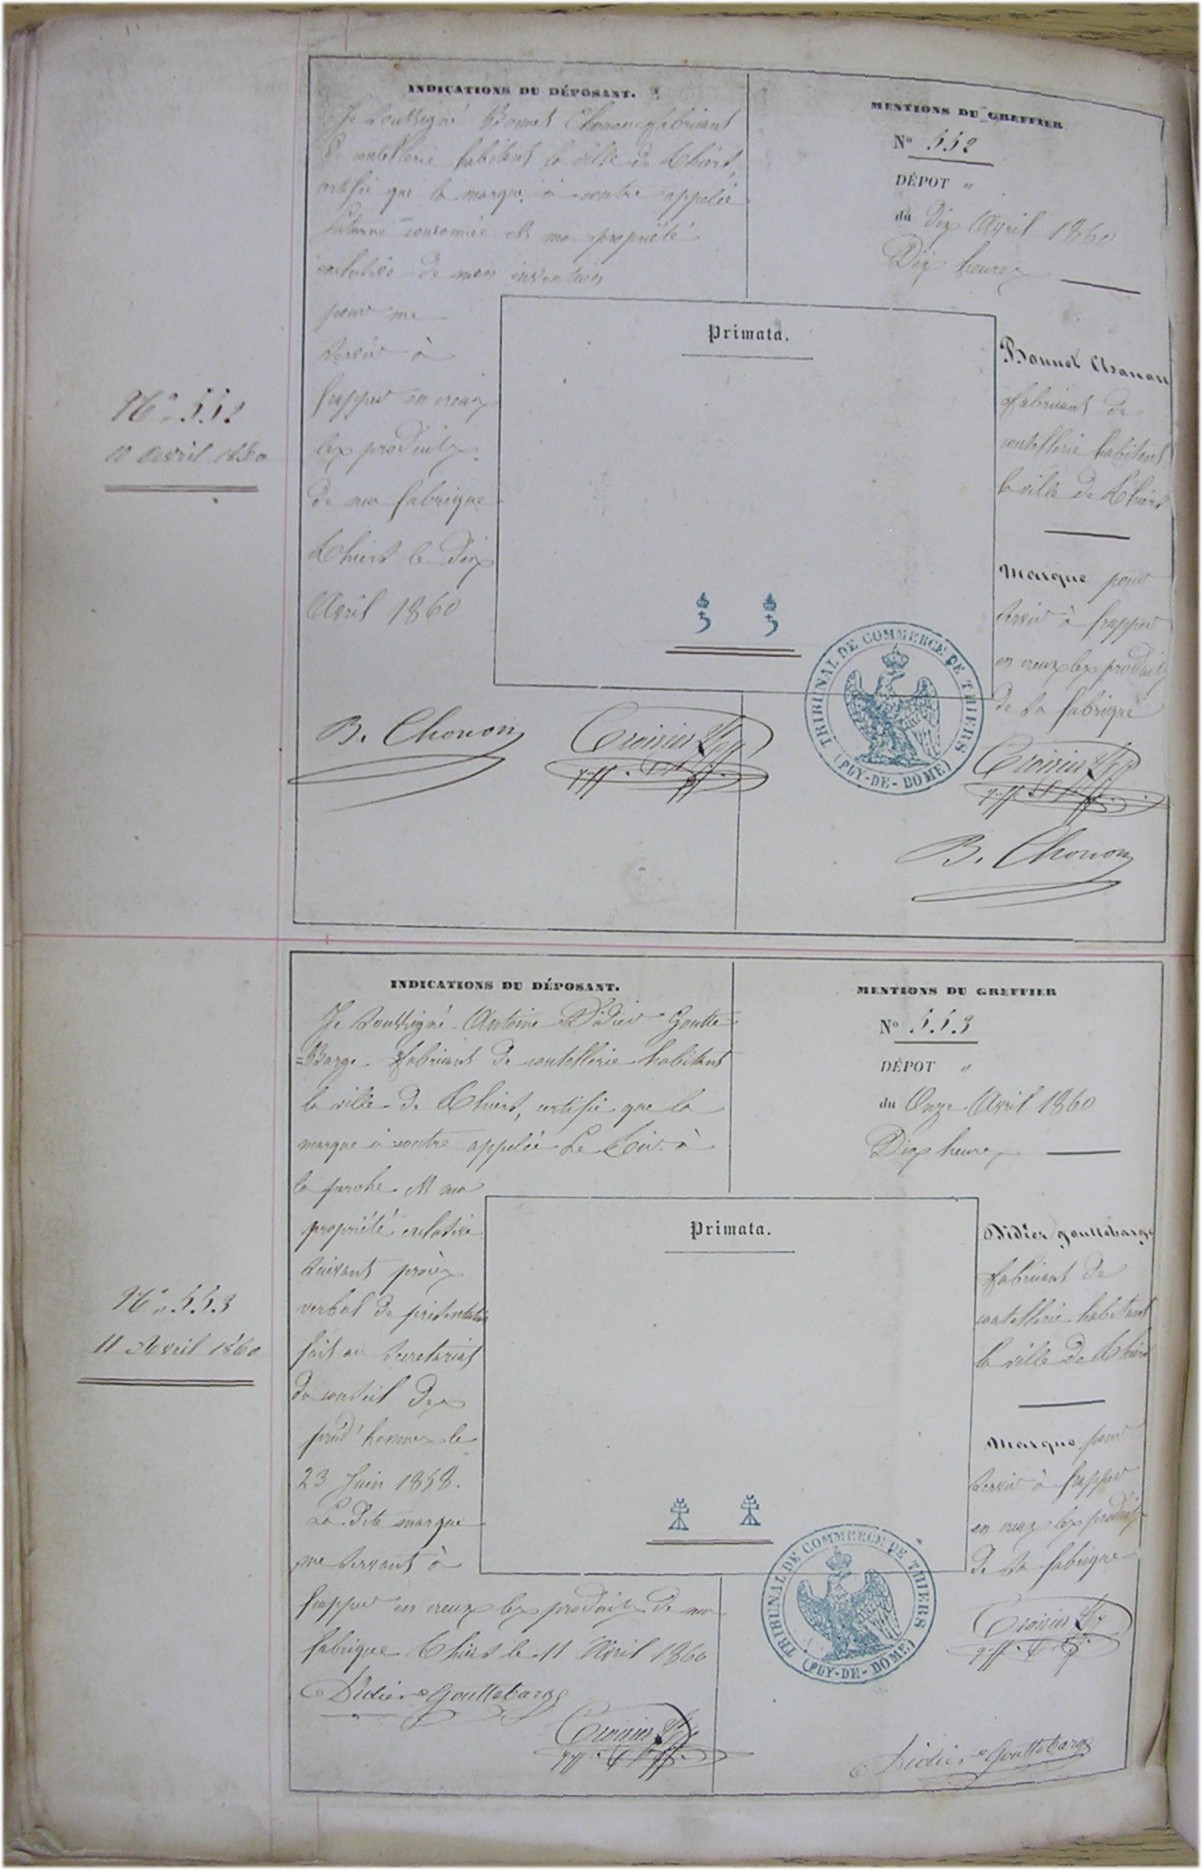 N° 552
10 Avril 1860
INDICATIONS DU DÉPOSANT.
Je soussigné Bonnet Chonon fabricant
de coutellerie habitant la ville de Thiers,
certifie que la marque ci contre appelée
Saturne couronnée est ma propriété
exclusive de mon invention
pour me
servir à
frapper en creux
les produits
de ma fabrique
Thiers le dix
Avril 1860
B. Chonon
MENTIONS DU GREFFIER
N° 552
DÉPOT "
du dix Avril 1860
Dix heures
Primata.
Bonnet Chonon
fabricant de
coutellerie habitant
la ville de Thiers
Marque pour
servir à frapper
en creux les produits
de sa fabrique
TRIBUNAL DE COMMERCE DE THIERS
(PUY-DE-DOME)
B. Chonon
N° 553
11 Avril 1860
INDICATIONS DU DÉPOSANT.
Je soussigné Antoine Didier Goutte-
=Barge fabricant de coutellerie habitant
la ville de Thiers, certifie que la
marque ci contre appelée Le à
la est ma
propriété exclusive
suivant procès
verbal de présentation
fait au secretariat
du conseil des
prud'hommes le
23 Juin 1858.
La dite marque
me servant à
frapper en creux les produits de ma
fabrique Thiers le 11 Avril 1860
Didier Gouttebarge
MENTIONS DU GREFFIER
N° 553
DÉPOT "
du Onze Avril 1860
Dix heures
Primata.
Didier gouttebarge
fabricant de
coutellerie habitant
la ville de Thiers
Marque pour
servir à frapper
en creux les produits
de sa fabrique
TRIBUNAL DE COMMERCE DE THIERS
(PUY-DE-DOME)
Didier Gouttebarge